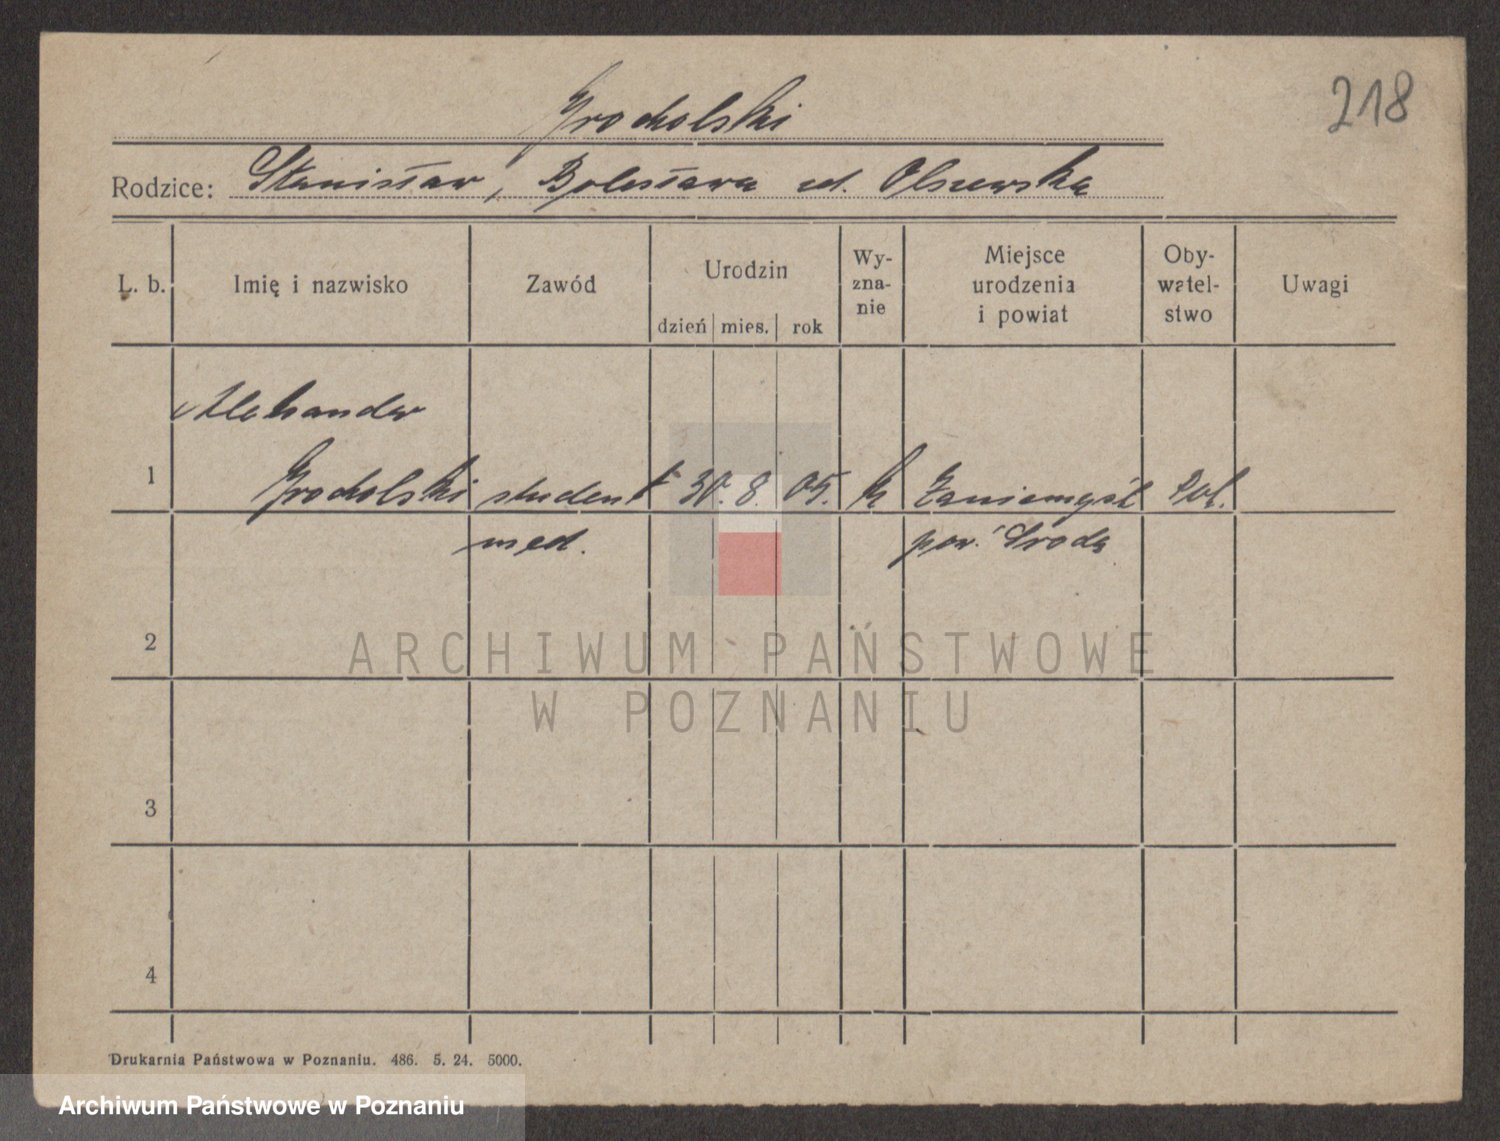 218
Grocholski
Rodzice: Stanisław, Bolesława zd. Olszewska
L. b. Imię i nazwisko Zawód Urodzin dzień mies. rok Wy-zna-nie Miejsce urodzenia i powiat Oby-watel-stwo Uwagi
Aleksander
1 Grocholski student 30. 8. 05. k Zaniemyśl Pol.
med. pow. Środa
2
ARCHIWUM PAŃSTWOWE
W POZNANIU
3
4
Drukarnia Państwowa w Poznaniu. 486. 5. 24. 5000.
Archiwum Państwowe w Poznaniu